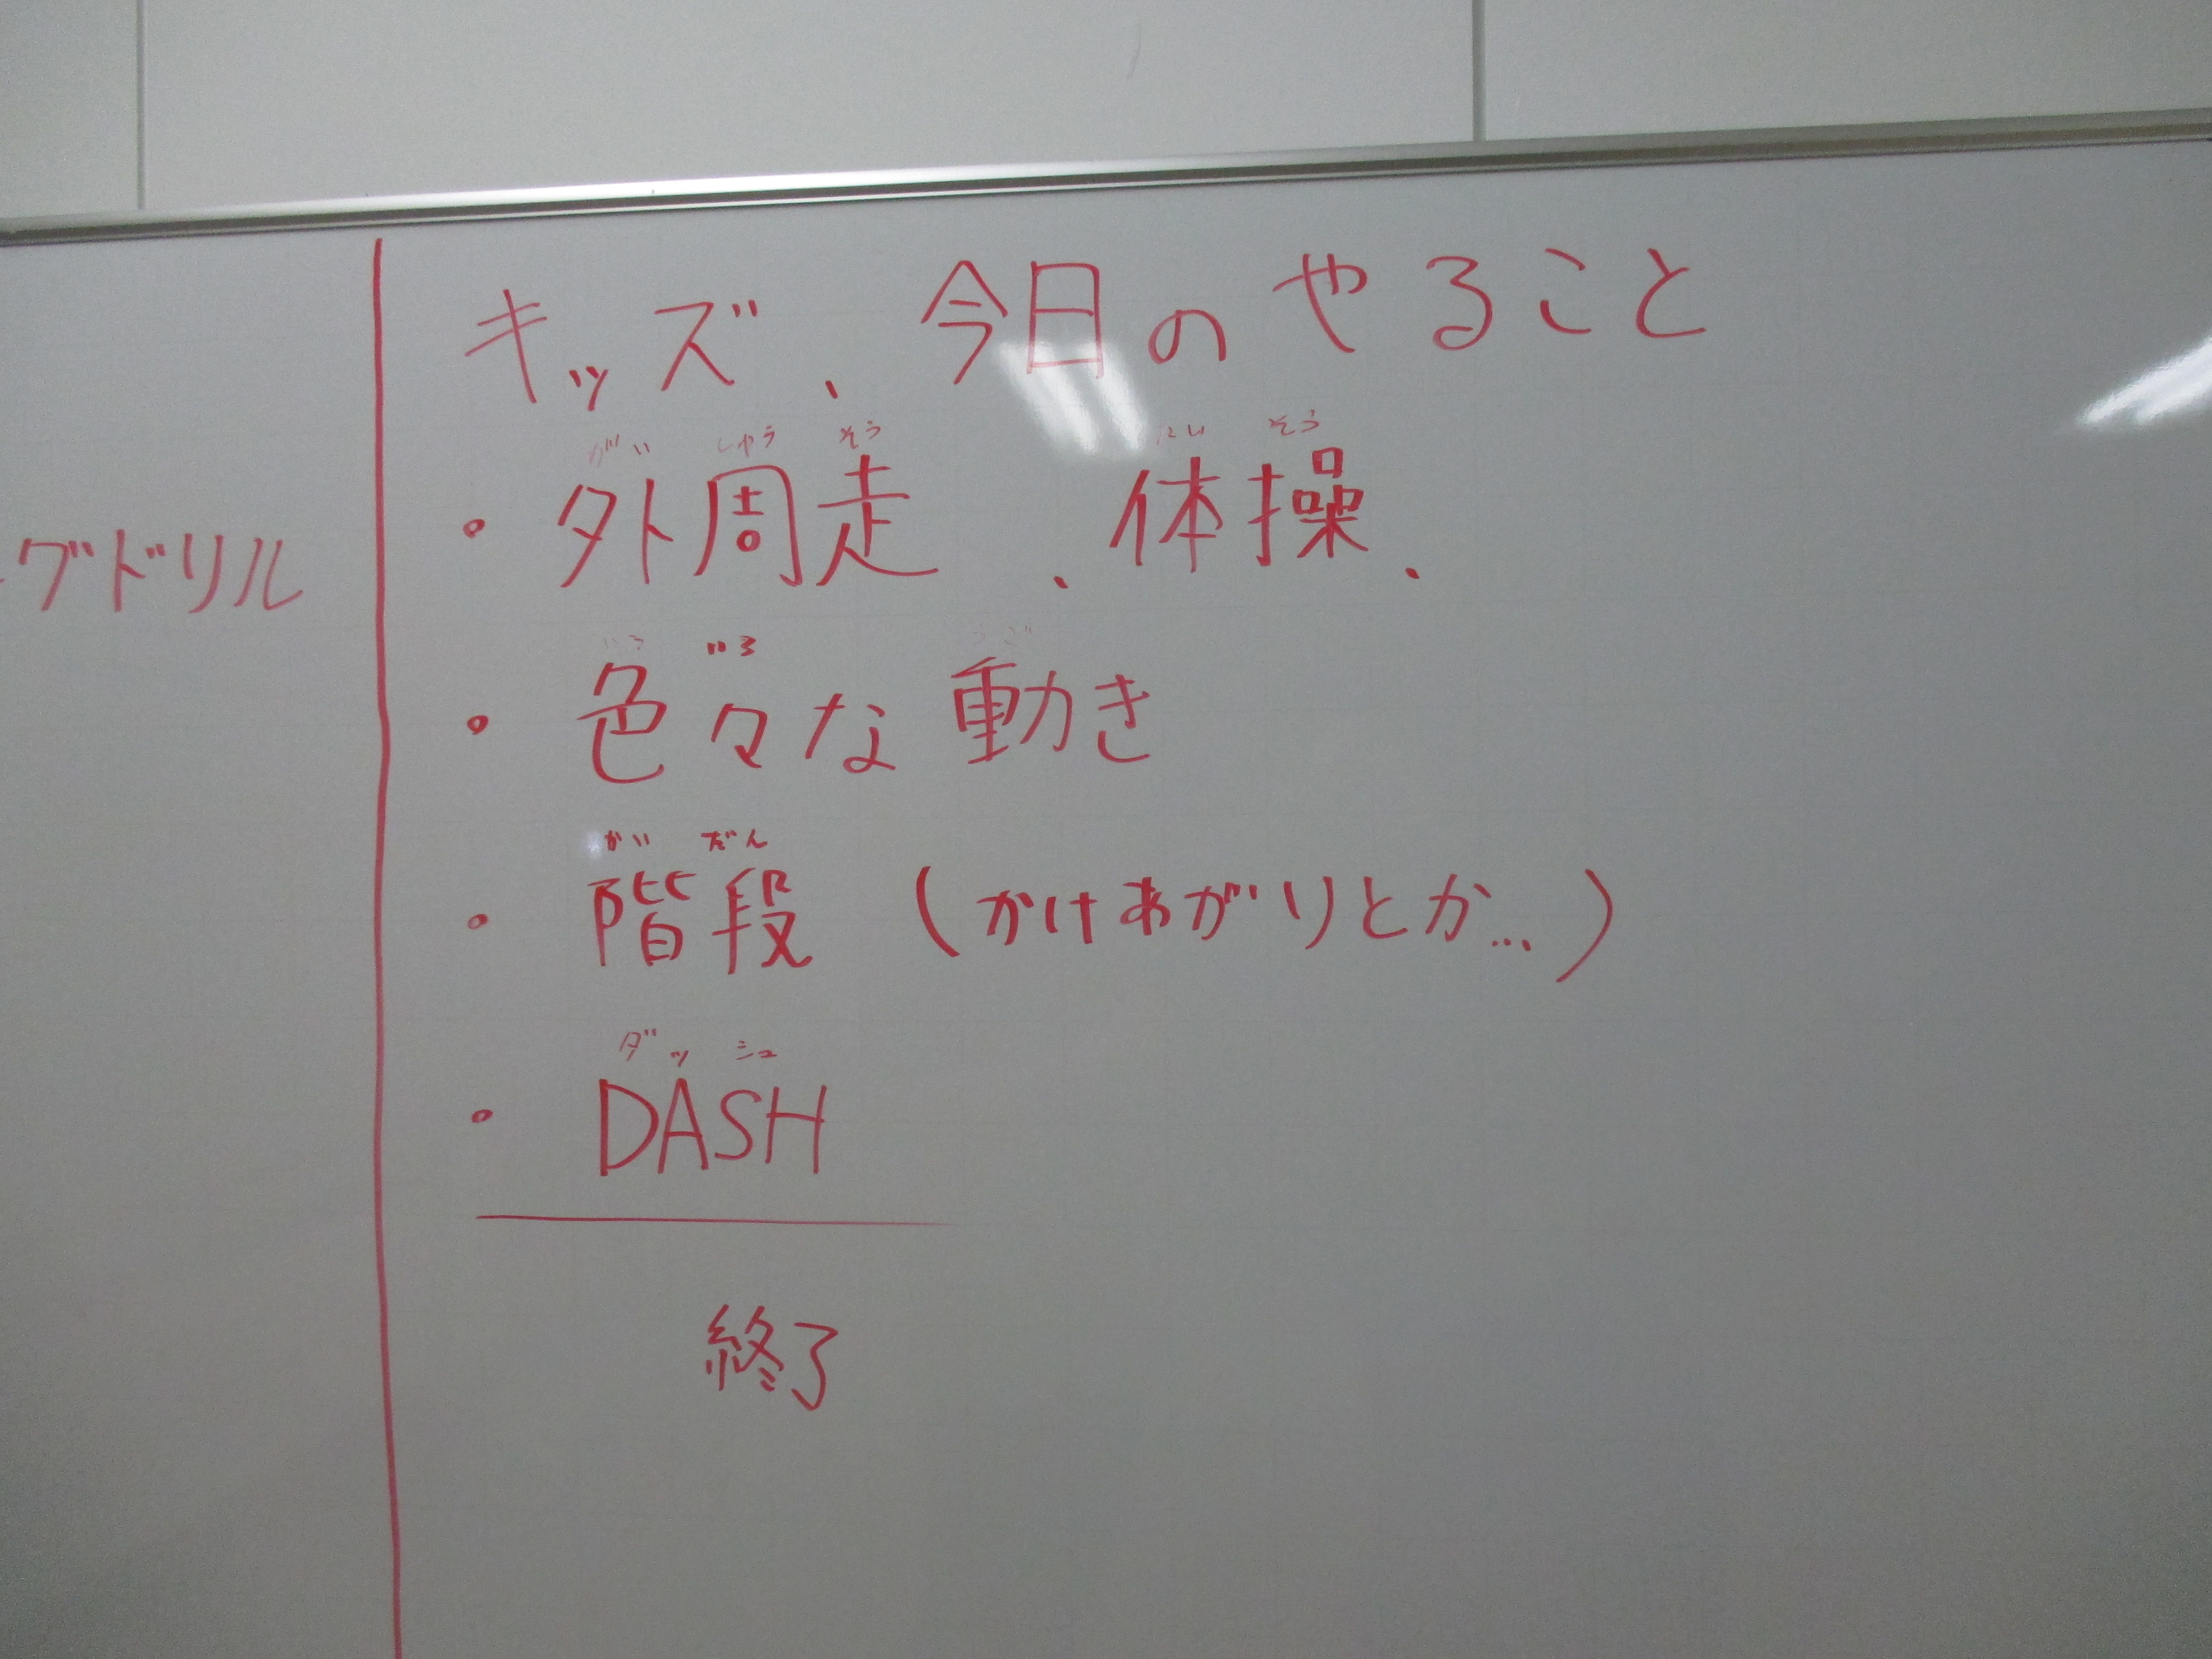 キッズ、今日のやること
がい しゅう そう たい そう
・外周走、体操、
いろ いろ うご
・色々な動き
かい だん
・階段(かけあがりとか…)
ダッシュ
・DASH
終了
グドリル